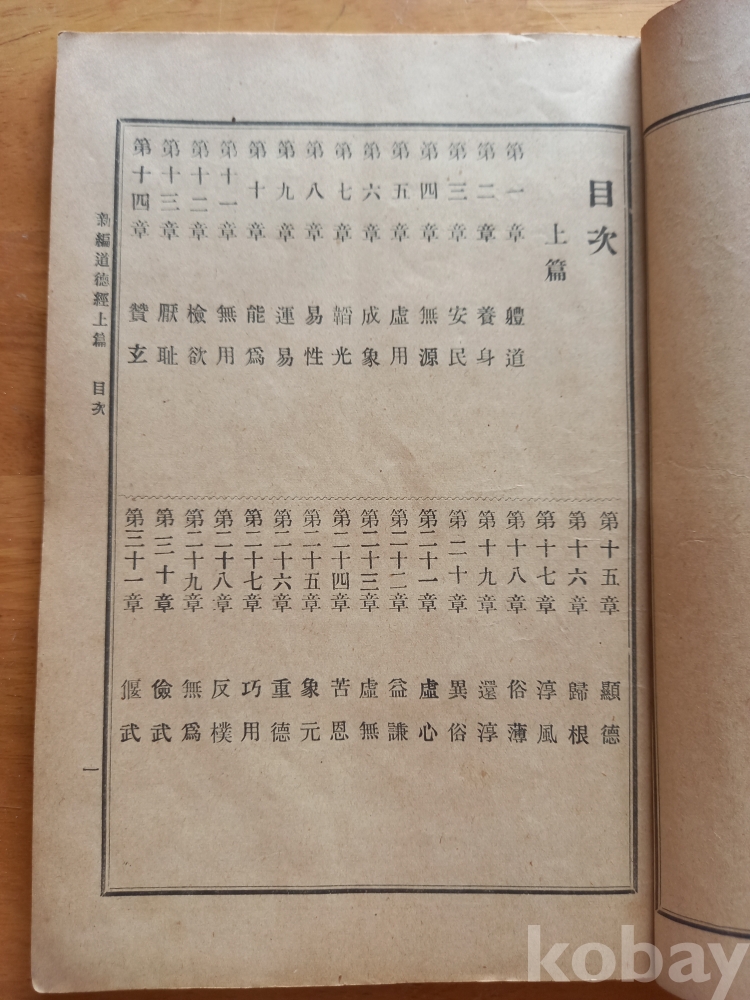 目次
上篇
第一章 體道
第二章 養身
第三章 安民
第四章 無源
第五章 虛用
第六章 成象
第七章 韜光
第八章 易性
第九章 運易
第十章 能爲
第十一章 無用
第十二章 檢欲
第十三章 厭耻
第十四章 贊玄
第十五章 顯德
第十六章 歸根
第十七章 淳風
第十八章 俗薄
第十九章 還淳
第二十章 異俗
第二十一章 虛心
第二十二章 益謙
第二十三章 虛無
第二十四章 苦恩
第二十五章 象元
第二十六章 重德
第二十七章 巧用
第二十八章 反樸
第二十九章 無爲
第三十章 儉武
第三十一章 偃武
新編道德經上篇 目次
一
kobay